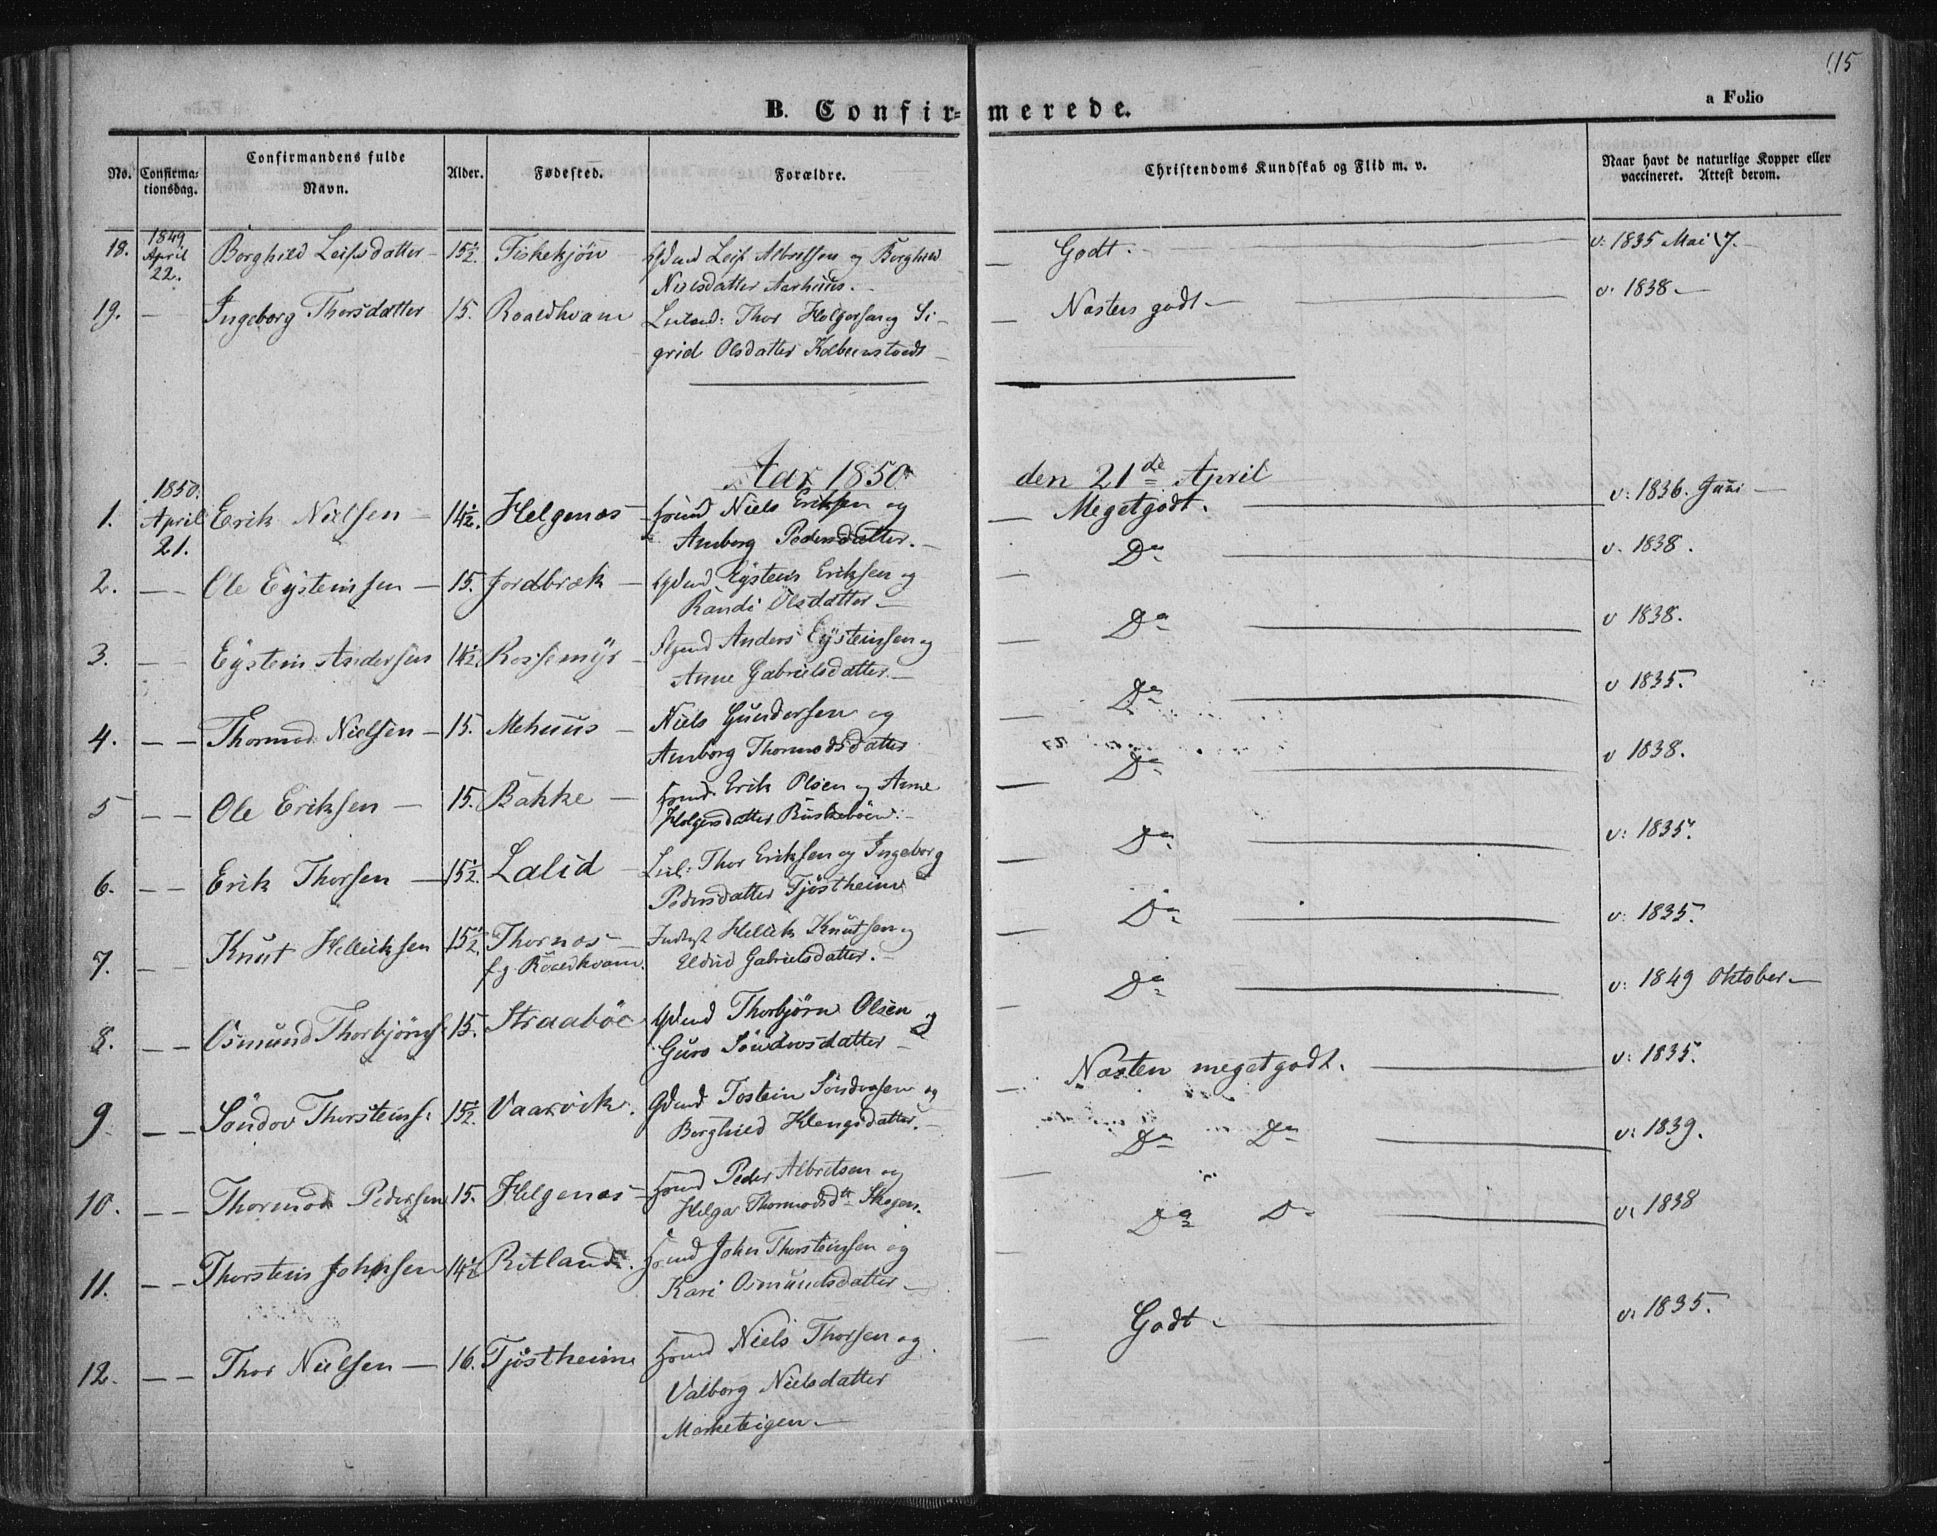 115
a Folio
B. Confirmerede.
No. Confirmationsdag. Confirmandens fulde Navn. Alder. Fødested. Forældre. Christendoms Kundskab og Flid m. v. Naar havt de naturlige Kopper eller vaccineret. Attest derom.
18. 1849 April 22. Borghild Leifsdatter 15½. Fiskekjøn Leif Albretsen og Borghild Godt. v: 1835 Mai 7.
Nielsdatter Aarhuus.
19. — Ingeborg Thorsdatter 15. Roaldkvam Thor Holgersen og Si- Næsten godt v. 1838
grid Olsdatter Kolbeenstvedt
Aar 1850 den 21de April
1. 1850. April 21. Erik Nielsen 14½. Helgenæs Niels Eriksen og Megetgodt. v: 1836. Juni
Amborg Pedersdatter.
2. — — Ole Eysteinsen — 15. Jordbræk Eystein Eriksen og Do v. 1838.
Randi Olsdatter
3. — — Eystein Andersen 14½. Rossemyr Anders Eysteinsen og Do v 1838.
Anne Gabrielsdatter
4. — — Thormod Nielsen — 15. Mehuus Niels Gundersen og Do v 1835.
Amborg Thormodsdatter
5 — — Ole Eriksen — 15. Bakke Erik Olsen og Anne Do v 1838.
Holgersdatter Buskebøen
6. — — Erik Thorsen — 15½. Lalid Thor Eriksen og Ingeborg Do v: 1835.
Pedersdatter Tjøstheim
7. — — Knut Helleiksen 15½. Thornæs Helleik Knutsen og Do v: 1835.
f. g. Roaldkvam. Eldrid Gabrielsdatter.
8. — — Osmund Thorbjørns 15. Straabøe Thorbjørn Olsen og Do v: 1849 Oktober
Guro Søndovsdatter
9 — — Søndov Thorsteins: 15½. Vaarvik. Tostein Søndovsen og Næsten megetgodt. v: 1835.
Borghild Klengsdatter.
10. — — Thormod Pedersen 15. Helgenæs Peder Albretsen og Do Do v: 1839.
Helga Thormodsdtr Skogen.
11. — — Thorstein Johnsen 14½ Ritland. John Thorsteinsen og Do Do v: 1838
Kari Osmundsdatter
12. — — Thor Nielsen — 16. Tjøstheim Niels Thorsen og Godt v: 1835.
Valborg Nielsdatter
Marketeigen